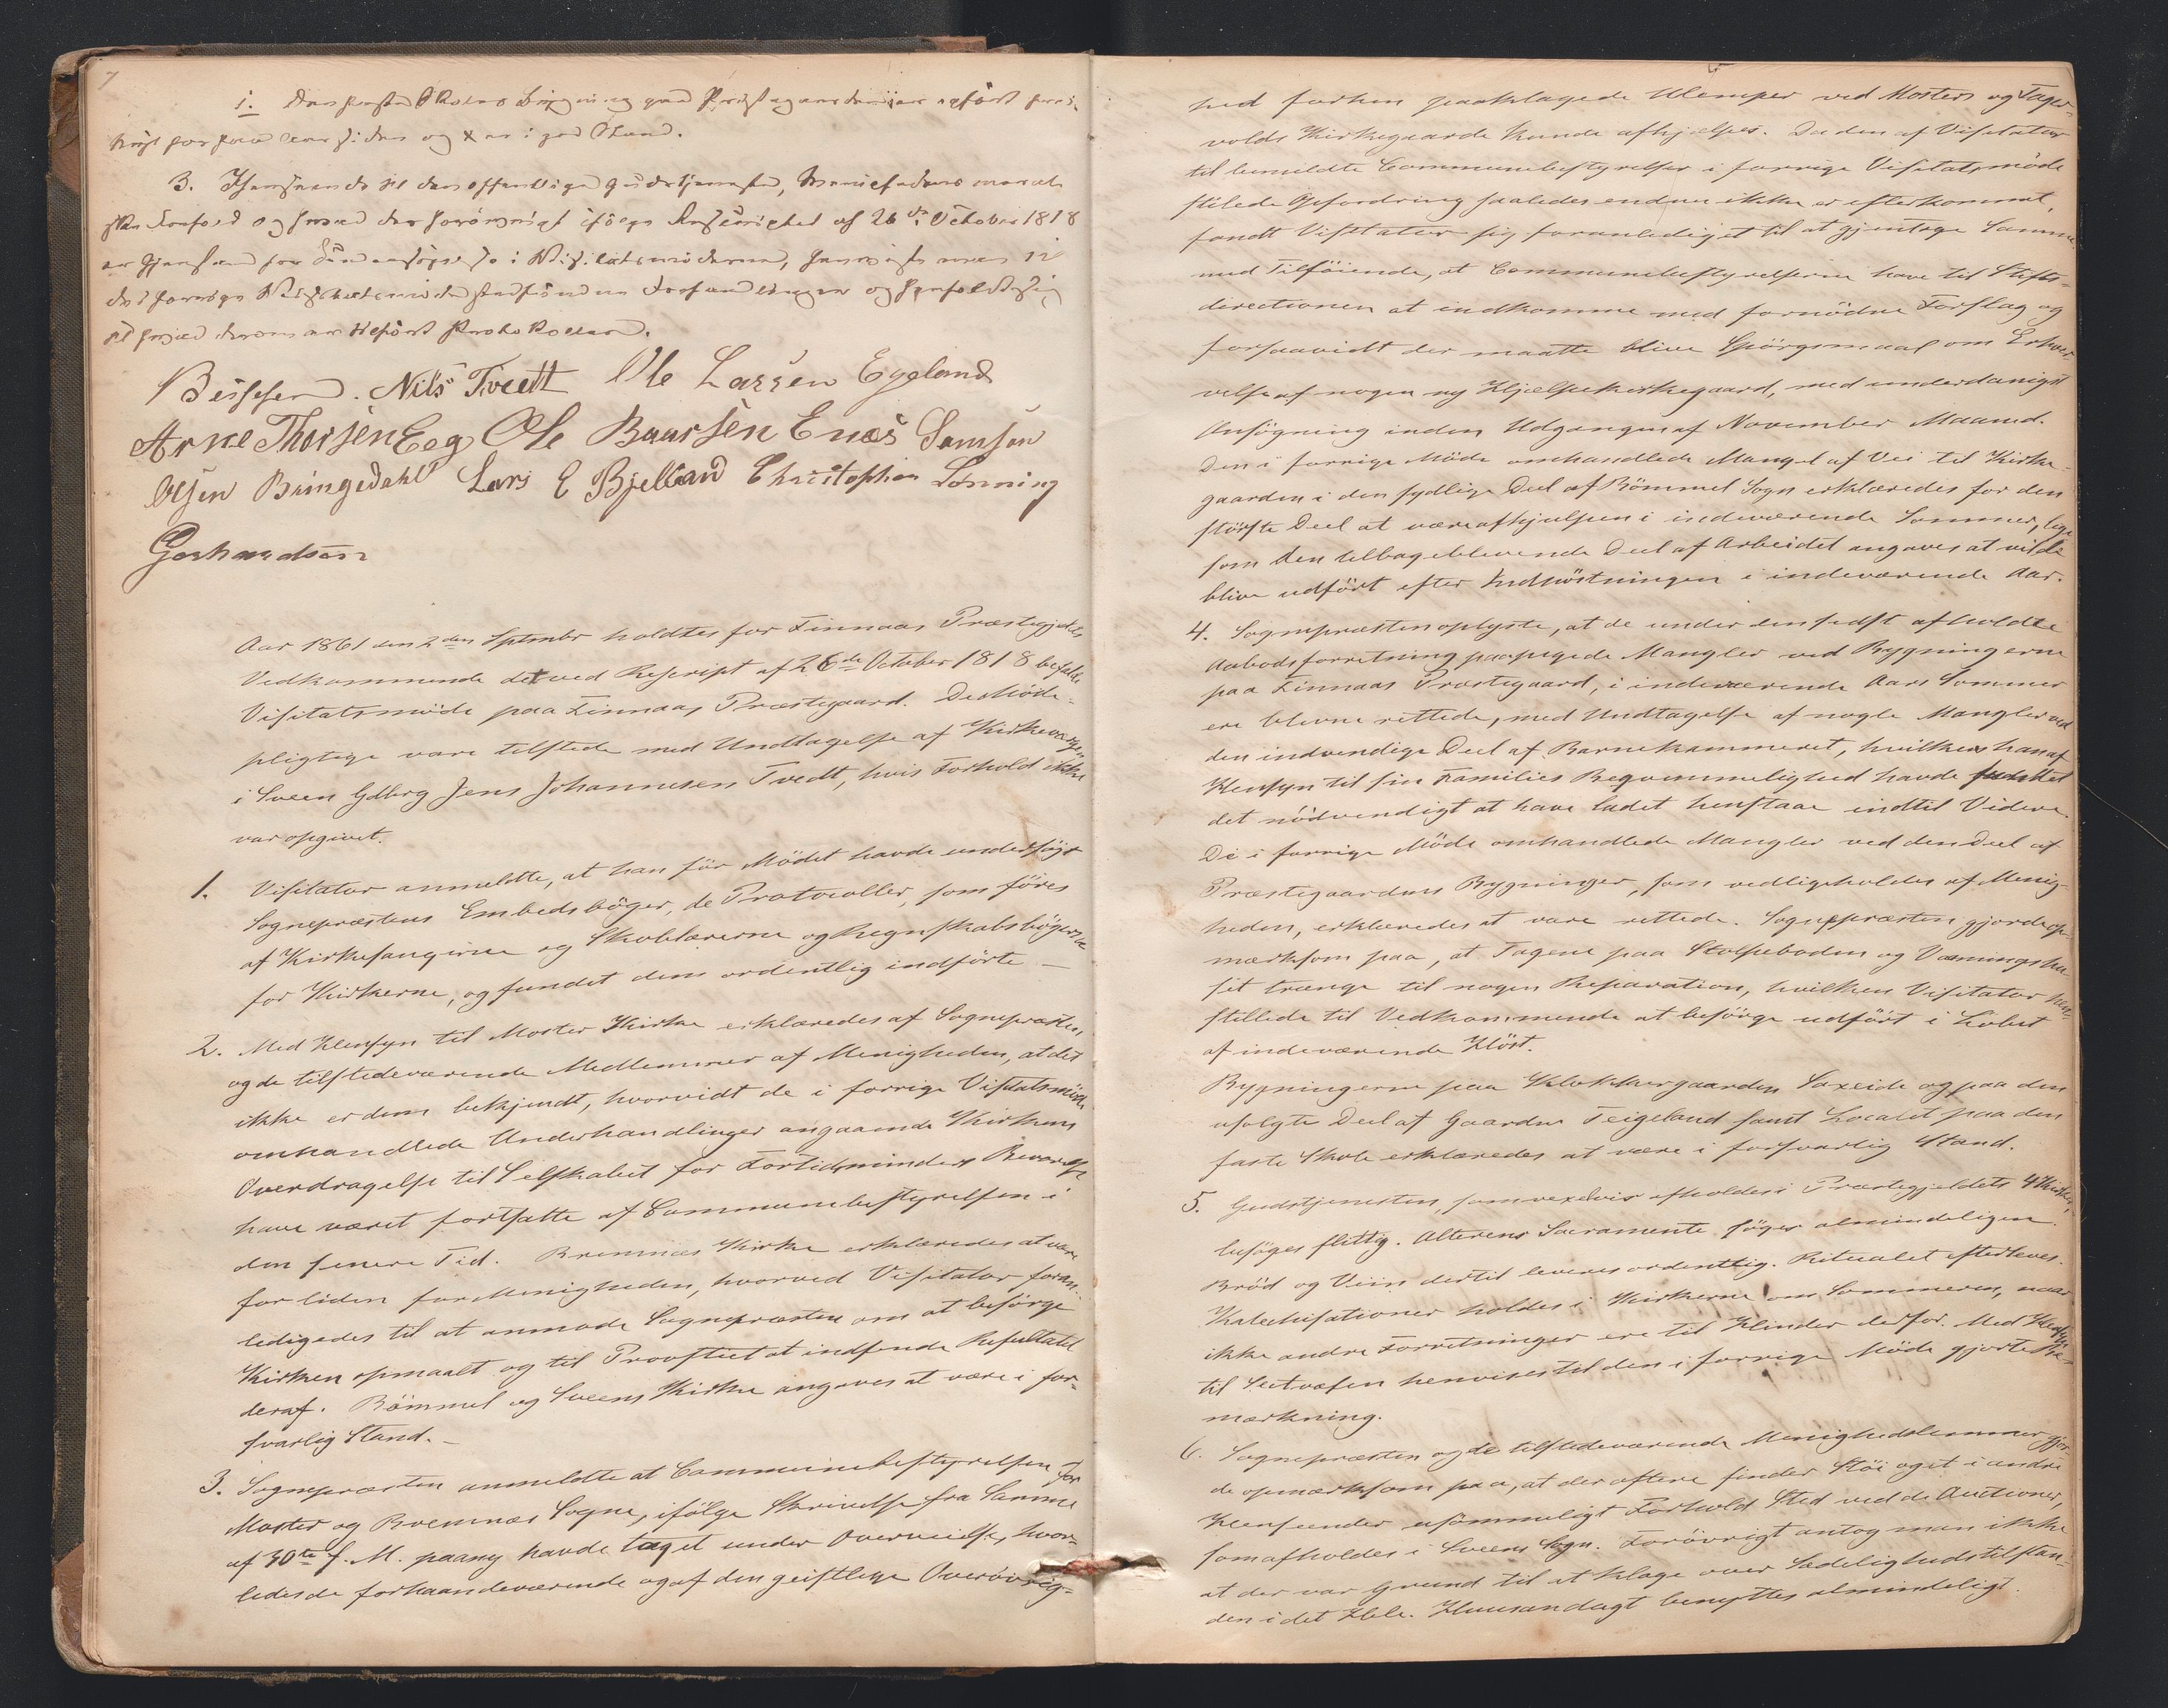 7
i. den faste Skoles Bygning paa Præstegaarden er opført
for faa Aar siden og er i god Stand.
3. Henseende til den offentlige Gudstjeneste, Menighedens
Forhold og hvad der forøvrigt ifølge Rescript af 26de October 1818
er Gjenstand for Undersøgelse i Visitatsmøderne, henviste man
de i forrige Visitatsmøde stedfundne Forhandlinger og
til hvad derom er tilført Protokollen.
Nils Tvedt Ole Larsen Egeland
Arne Thorsen Eeg Ole Baarsen Enæs Samson
Olsen Bringedahl Lars E Bjelland Christopher Lønning
Gerhardsen
Aar 1861 den 2den Septmbr holdtes for Finnaas Præstegjelds
Vedkommende det ved Rescript af 26de October 1818 befalede
Visitatsmøde paa Finnaas Præstegaard. De Møde-
pligtige vare tilstede med Undtagelse af Kirkeværgen
i Sveen Gdbrg Jens Johannesen Tvedt, hvis Forhold ikke
var opgivet.
1. Visitator anmeldte, at han før Mødet havde undersøgt
Sognepræstens Embedsbøger, de Protocoller, som føres
af Kirkesangerne og Skolelærerne og Regnskabsbøgerne
for Kirkerne, og fundet dem ordentlig indførte. –
2. Med Hensyn til Moster Kirke erklæredes af Sognepræsten
og de tilstedeværende Medlemmer af Menigheden, at det
ikke er dem bekjendt, hvorvidt de i forrige Visitatsmøde
omhandlede Underhandlinger angaaende Kirkens
Overdragelse til Selskabet for Fortidsminders Bevarelse
have været fortsatte af Communebestyrelsen i
den senere Tid. Bremnæs Kirke erklæredes at være
for liden for Menigheden, hvorved Visitator foran-
ledigedes til at anmode Sognepræsten om at besørge
Kirken opmaalt og til Provstiet at indsende Resultatet
deraf. Bømmel og Sveens Kirke angaves at være i for-
svarlig Stand. –
3. Sognepræsten anmeldte at Communebestyrelsen for
Moster og Bremnæs Sogne, ifølge Skrivelse fra Samme
af 30te f. M. paany havde taget under Overveielse, hvor-
ledes de forhaandeværende og af den geistlige Overøvrig-
hed forhen paaklagede Ulemper ved Mosters og Fager-
volds Kirkegaarde kunde afhjelpes. Da den af Visitator
til bemeldte Communebestyrelser i forrige Visitatsmøde
stilede Opfordring saaledes endnu ikke er efterkommet,
fandt Visitator sig foranlediget til at gjentage Samme
med Tilføiende, at Communebestyrelserne have til Stifts-
directionen at indkomme med fornødne Forslag og
forsaavidt der maatte blive Spørgsmaal om Erhver
velse af nogen ny Hjælpekirkegaard, med underdanigst
Ansøgning inden Udgangen af November Maaned.
Den i forrige Møde omhandlede Mangel af Vei til Kirke-
gaarden i den sydlige Deel af Bømmel Sogn erklæredes for den
største Deel at være afhjulpen i indeværende Sommer, lige
som den tilbageblevende Deel af Arbeidet angaves at ville
blive udført efter Indhøstningen i indeværende Aar.
4. Sognepræsten oplyste, at de under den sidst afholdte
Aabodsforretning paapegede Mangler ved Bygningerne
paa Finnaas Præstegaard, i indeværende Aars Sommer
ere blevne rettede, med Undtagelse af nogle Mangler ved
den indvendige Deel af Barnekammeret, hvilken han af
Hensyn til sin Families Beqvemmelighed havde fundet
det nødvendigt at have ladet henstaae indtil Videre.
De i forrige Møde omhandlede Mangler ved den Deel af
Præstegaardens Bygninger, som vedligeholdes af Menig-
heden, erklæredes at være rettede. Sognepræsten gjorde op-
mærksom paa, at Tagene paa Stolpeboden og Vaaningshu-
set trænge til nogen Reparation, hvilken Visitator hen-
stillede til Vedkommende at besørge udført i Løbet
af indeværende Høst.
Bygningerne paa Klokkergaarden Saxeide og paa den
usolgte Deel af Gaarden Teigeland samt Localet paa den
faste Skole erklæredes at være i forsvarlig Stand.
5. Gudstjenesten, som vexelvis afholdes i Præstegjeldets 4 Kirker,
besøges flittig. Alterens Sacramente søges almindeligen.
Brød og Viin dertil leveres ordentlig. Ritualet efterleves.
Katechisationer holdes i Kirkerne om Sommeren, naar
ikke andre Forretninger ere til Hinder derfor. Med Hensyn
til Sectvæsen henvises til den i forrige Møde gjorte Be-
mærkning.
6. Sognepræsten og de tilstedeværende Menighedslemmer gjor-
de opmærksom paa, at der oftere finder Støi og et i andre
Henseender usømmeligt Forhold Sted ved de Auctioner,
som afholdes i Sveens Sogn. Forøvrigt antog man ikke
at der var Grund til at klage over Sædelighedstilstan-
den i det Hele. Huusandagt benyttes almindeligt.